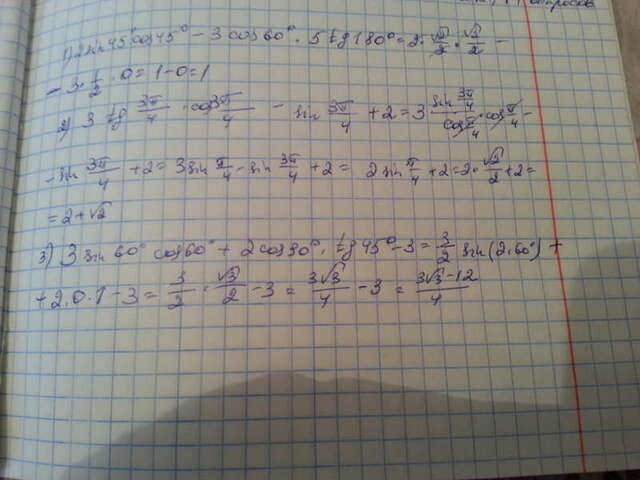 вопросов
1) 2 sin 45° cos 45° – 3 cos 60° · 5 tg 180° = 2 · √2/2 · √2/2 –
– 3 · 1/2 · 0 = 1 – 0 = 1
2) 3 tg 3π/4 · cos 3π/4 – sin 3π/4 + 2 = 3 sin 3π/4 / cos π/4 · cos π/4 –
– sin 3π/4 + 2 = 3 sin π/4 – sin 3π/4 + 2 = 2 sin π/4 + 2 = 2 · √2/2 + 2 =
= 2 + √2
3) 3 sin 60° cos 60° + 2 cos 90° · tg 45° – 3 = 3/2 sin (2 · 60°) +
+ 2 · 0 · 1 – 3 = 3/2 · √3/2 – 3 = 3√3/4 – 3 = 3√3 – 12/4